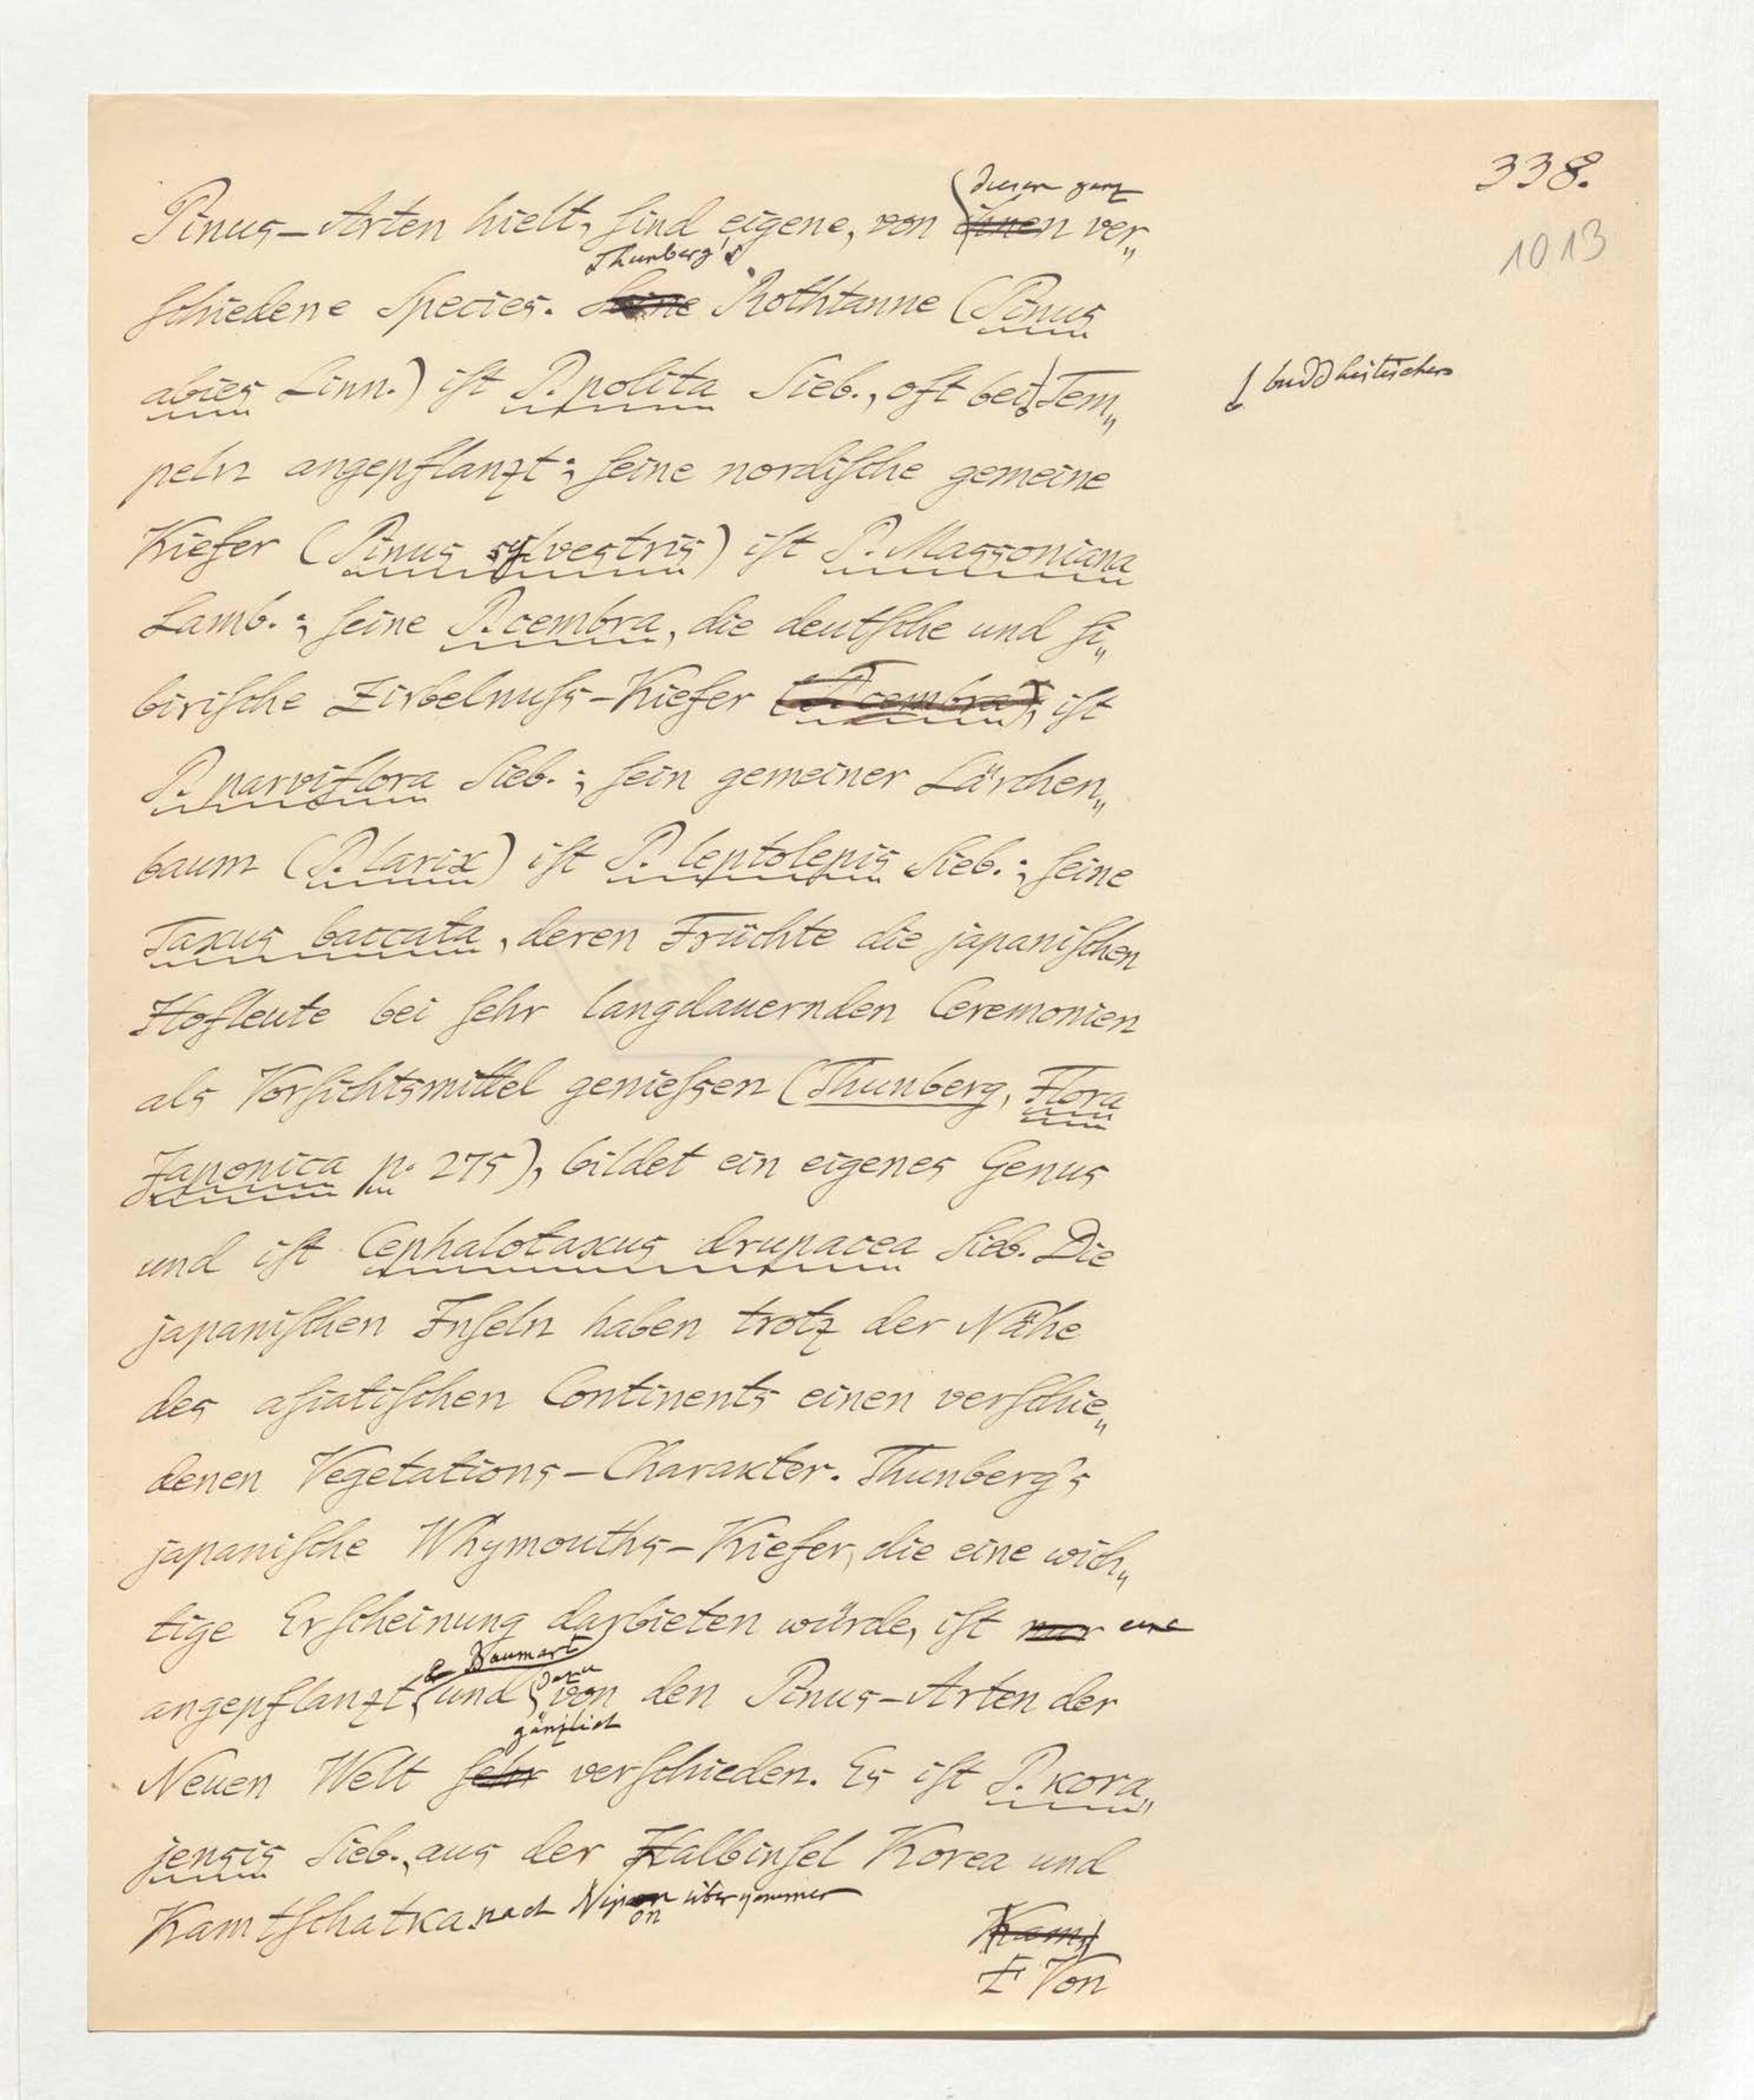 338.
1013
diesen ganz
Pinus-Arten hielt, sind eigene, von ihnen ver„
Thunberg's
schiedene Species. Seine Rothtanne (Pinus
abies Linn.) ist P. polita Sieb., oft bei Tem„
buddhistischen
peln angepflanzt; seine nordische gemeine
Kiefer (Pinus sylvestris) ist P. Massoniana
Lamb.; seine P. cembra, die deutsche und si„
birische Zirbelnuss-Kiefer (P. cembra), ist
P. parviflora Sieb.; sein gemeiner Lärchen„
baum (P. larix) ist P. leptolepis Sieb.; seine
Taxus baccata, deren Früchte die japanischen
Hofleute bei sehr langdauernden Ceremonien
als Vorsichtsmittel geniessen (Thunberg, Flora
Japonica p. 275), bildet ein eigenes Genus
und ist Cephalotaxus drupacea Sieb. Die
japanischen Inseln haben trotz der Nähe
des asiatischen Continents einen verschie„
denen Vegetations-Charakter. Thunberg's
japanische Whymouths-Kiefer, die eine wich„
tige Erscheinung darbieten würde, ist nur eine
Baumart dazu
angepflanzt und von den Pinus-Arten der
gänzlich
Neuen Welt sehr verschieden. Es ist P. kora„
jensis Sieb., aus der Halbinsel Korea und
Kamtschatka nach Nipon übergenommen
on
Kamt
Von